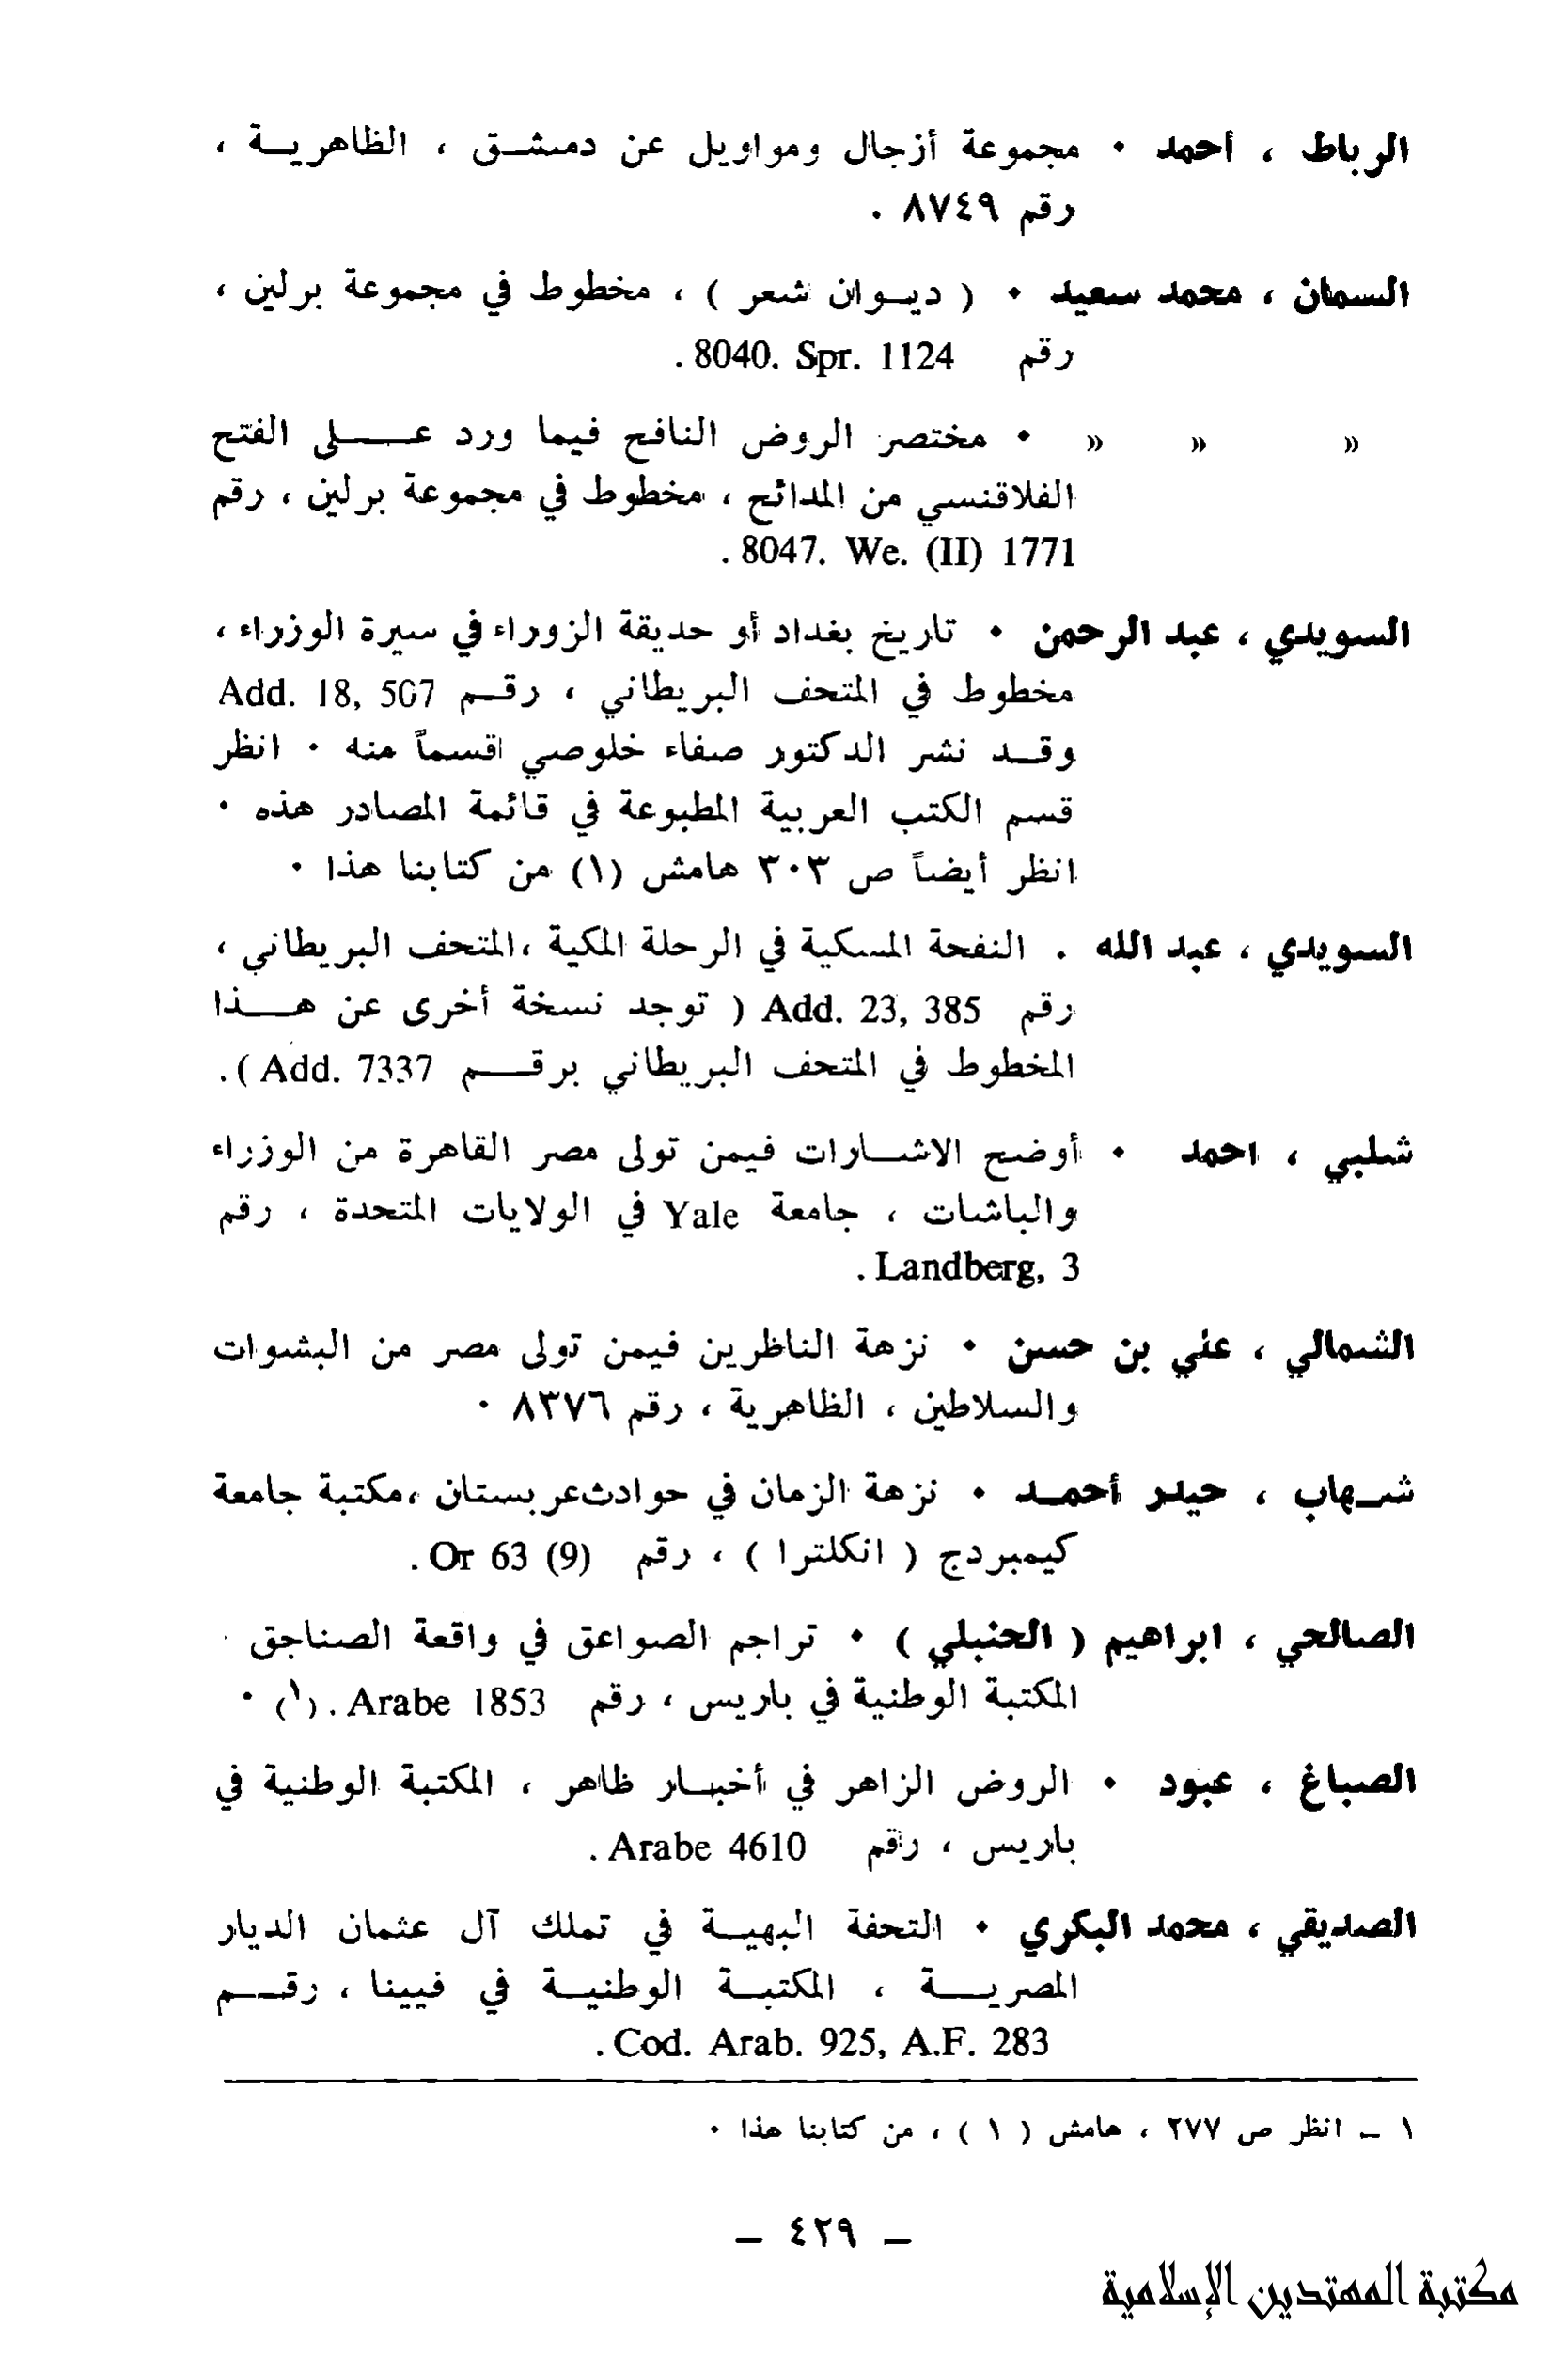 الرباط ، أحمد ٠ مجموعة أزجال ومواويل عن دمشق ، الظاهرية ،
رقم ٨٧٤٩ .
السمان ، محمد سعيد ٠ ( ديوان شعر ) ، مخطوط في مجموعة برلين ،
رقم 8040. Spr. 1124 .
» » » ٠ مختصر الروض النافح فيما ورد على الفتح
الفلاقنسي من المدائح ، مخطوط في مجموعة برلين ، رقم
8047. We. (II) 1771 .
السويدي ، عبد الرحمن ٠ تاريخ بغداد أو حديقة الزوراء في سيرة الوزراء ،
مخطوط في المتحف البريطاني ، رقم Add. 18, 507
وقد نشر الدكتور صفاء خلوصي قسماً منه ٠ انظر
قسم الكتب العربية المطبوعة في قائمة المصادر هذه ٠
انظر أيضاً ص ٣٠٣ هامش (١) من كتابنا هذا ٠
السويدي ، عبد الله . النفحة المسكية في الرحلة المكية ، المتحف البريطاني ،
رقم Add. 23, 385 ( توجد نسخة أخرى عن هذا
المخطوط في المتحف البريطاني برقم Add. 7337 ) .
شلبي ، احمد ٠ أوضح الاشارات فيمن تولى مصر القاهرة من الوزراء
والباشات ، جامعة Yale في الولايات المتحدة ، رقم
Landberg, 3 .
الشمالي ، علي بن حسن ٠ نزهة الناظرين فيمن تولى مصر من البشوات
والسلاطين ، الظاهرية ، رقم ٨٣٧٦ ٠
شهاب ، حيدر أحمد ٠ نزهة الزمان في حوادث عربستان ، مكتبة جامعة
كيمبردج ( انكلترا ) ، رقم Or 63 (9) .
الصالحي ، ابراهيم ( الحنبلي ) ٠ تراجم الصواعق في واقعة الصناجق
المكتبة الوطنية في باريس ، رقم Arabe 1853 . (١) ٠
الصباغ ، عبود ٠ الروض الزاهر في أخبار ظاهر ، المكتبة الوطنية في
باريس ، رقم Arabe 4610 .
الصديقي ، محمد البكري ٠ التحفة البهية في تملك آل عثمان الديار
المصرية ، المكتبة الوطنية في فيينا ، رقم
Cod. Arab. 925, A.F. 283 .
١ – انظر ص ٢٧٧ ، هامش ( ١ ) ، من كتابنا هذا ٠
– ٤٢٩ –
مكتبة المهتدين الإسلامية